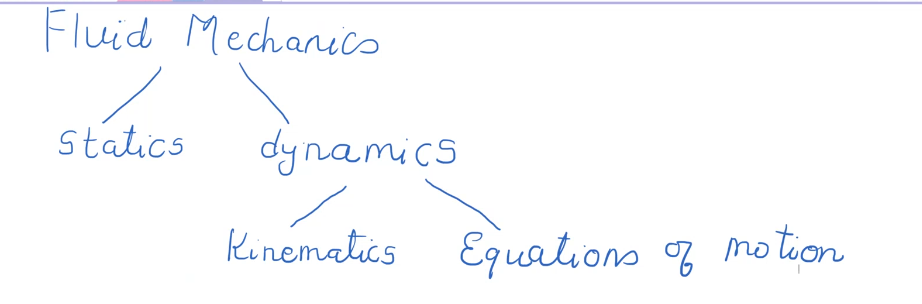 Fluid Mechanics
statics dynamics
Kinematics Equations of motion